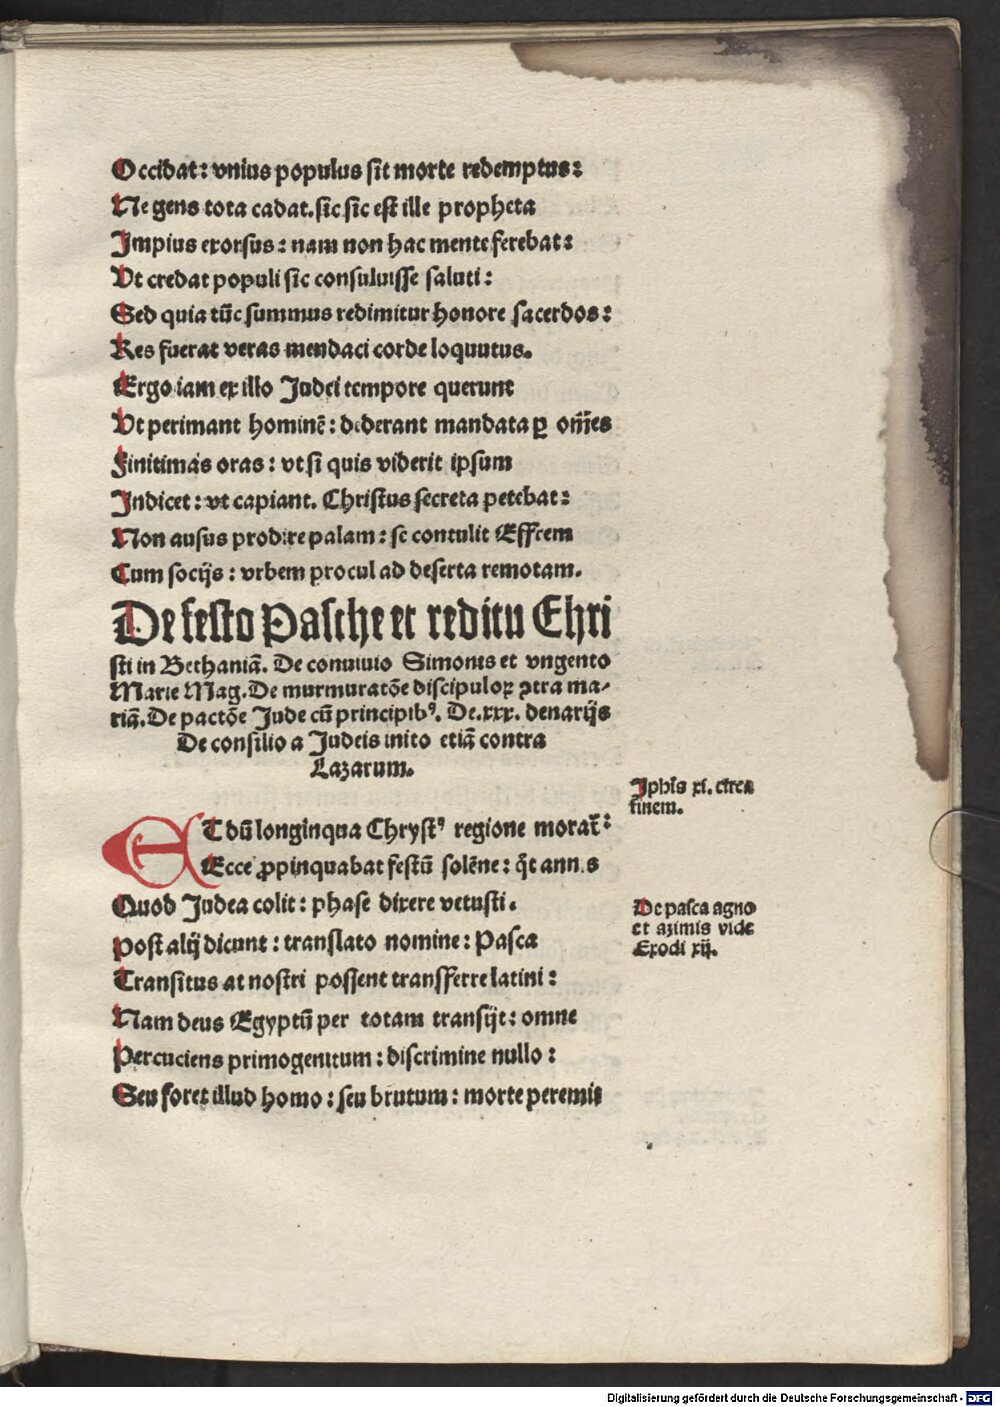 Occidat: vnius populus sit morte redemptus:
Ne gens tota cadat. sic sic est ille propheta
Impius exorsus: nam non hac mente ferebat:
Vt credat populi sic consuluisse saluti:
Sed quia tūc summus redimitur honore sacerdos:
Res fuerat veras mendaci corde loquutus.
Ergo iam ex illo Judei tempore querunt
Vt perimant hominē: dederant mandata ꝑ om̄es
Finitimas oras: vt si quis viderit ipsum
Indicet: vt capiant. Christus secreta petebat:
Non ausus prodire palam: se contulit Effrem
Cum socijs: vrbem procul ad deserta remotam.
De festo Pasche et reditu Chri
sti in Bethaniā. De conuiuio Simonis et vngento
Marie Mag. De murmuratōe discipuloꝝ ꝯtra ma⸗
riā. De pactōe Jude cū principibꝰ. De .xxx. denarijs
De consilio a Judeis inito etiā contra
Lazarum.
Jphīs xi. circa
finem.
ET dū longinqua Chrystꝰ regione morat̄:
Ecce ꝓpinquabat festū solēne: qt̄ annis
Quod Judea colit: phase dixere vetusti.
Post alij dicunt: translato nomine: Pasca
De pasca agno
et azimis vide
Exodi xij.
Transitus at nostri possent transfferre latini:
Nam deus Egyptū per totam transijt: omne
Percuciens primogenitum: discrimine nullo:
Seu foret illud homo: seu brutum: morte peremit
Digitalisierung gefördert durch die Deutsche Forschungsgemeinschaft - DFG